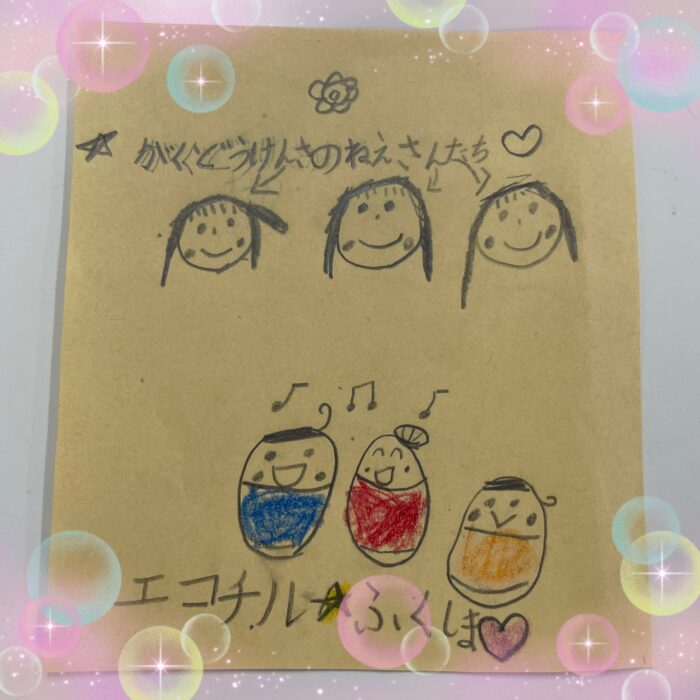 ★がくどうけんさのねえさんたち♡
エコチル★ふくしま♡